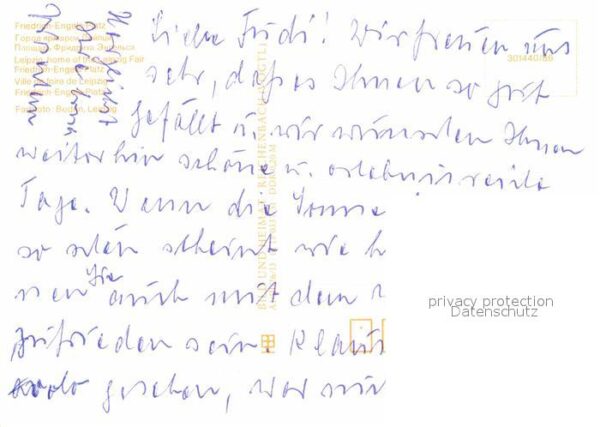 Liebe Trudi! Wir freuen uns
sehr, daß es Ihnen so gut
gefällt u. wir wünschen Ihnen
weiterhin schöne u. erlebnisreiche
Tage. Wenn die Sonne
so schön scheint wie h
nen Sie auch mit dem
zufrieden sein. Klaus
gesehen, war mir
Herzlichst
Friedrich-Engels-Platz
Город ярмарок Лейпциг
Площадь Фридриха Энгельса
Leipzig home of the Leipzig Fair
Friedrich-Engels-Platz
Ville de foire de Leipzig
Friedrich-Engels-Platz
BILD UND HEIMAT REICHENBACH (VOGTL)
301440/89
privacy protection
Datenschutz